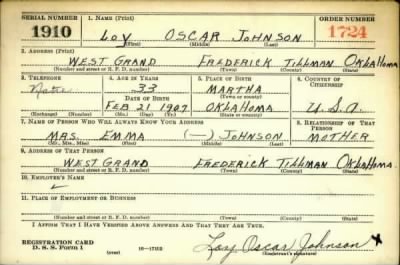 SERIAL NUMBER 1. NAME (Print) ORDER NUMBER
1910 LOY OSCAR JOHNSON 1724
(First) (Middle) (Last)
2. ADDRESS (Print)
WEST GRAND FREDERICK TILLMAN OKLAHOMA
(Number and street or R. F. D. number) (Town) (County) (State)
3. TELEPHONE 4. AGE IN YEARS 5. PLACE OF BIRTH 6. COUNTRY OF CITIZENSHIP
None 33 MARTHA
DATE OF BIRTH (Town or county)
FEB 21 1907 OKLAHOMA U.S.A
(Exchange) (Number) (Mo.) (Day) (Yr.) (State or country)
7. NAME OF PERSON WHO WILL ALWAYS KNOW YOUR ADDRESS 8. RELATIONSHIP OF THAT PERSON
MRS. EMMA (—) JOHNSON MOTHER
(Mr., Mrs., Miss) (First) (Middle) (Last)
9. ADDRESS OF THAT PERSON
WEST GRAND FREDERICK TILLMAN OKLAHOMA
(Number and street or R. F. D. number) (Town) (County) (State)
10. EMPLOYER'S NAME
11. PLACE OF EMPLOYMENT OR BUSINESS
(Number and street or R. F. D. number) (Town) (County) (State)
I AFFIRM THAT I HAVE VERIFIED ABOVE ANSWERS AND THAT THEY ARE TRUE.
REGISTRATION CARD
D. S. S. Form 1 Loy Oscar Johnson
(over) (Registrant's signature)